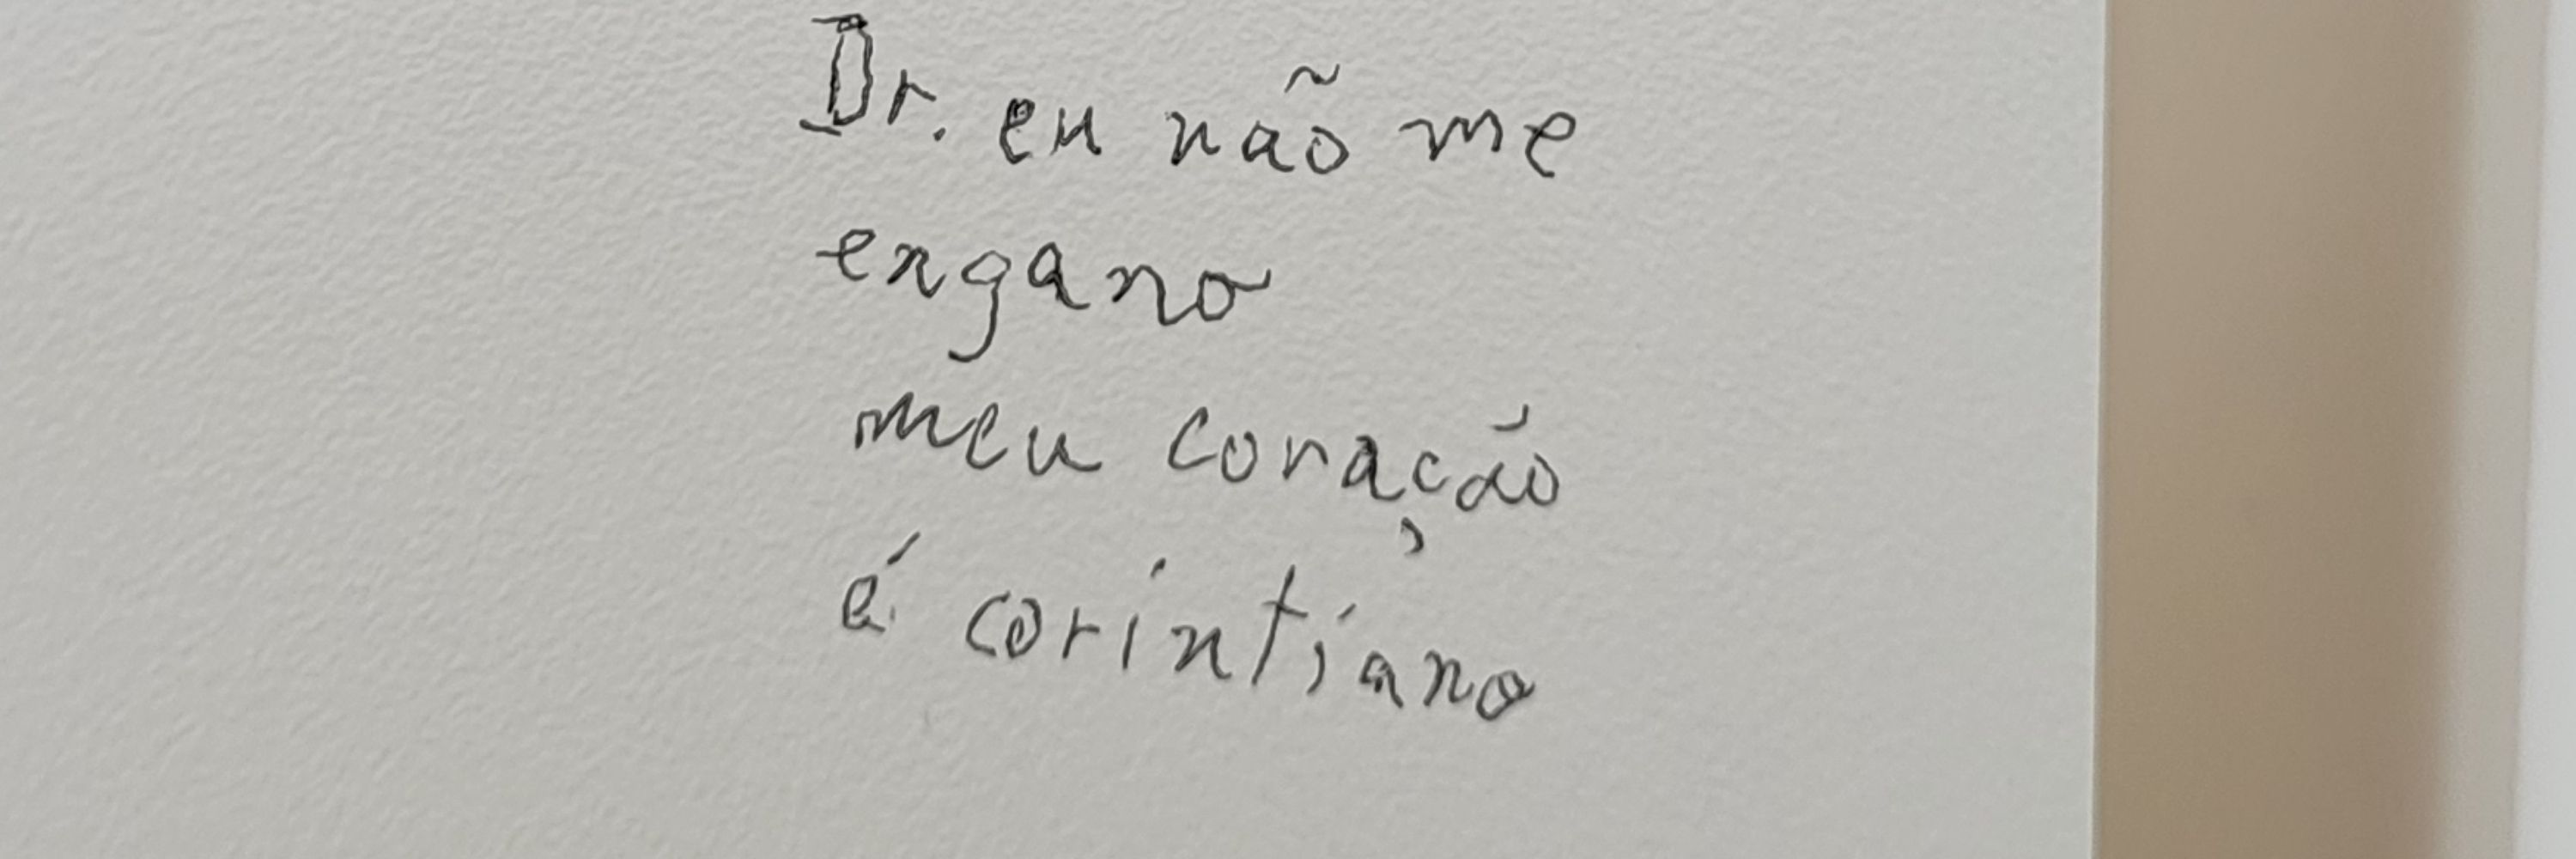 Dr. eu não me
engano
meu coração
é corintiano